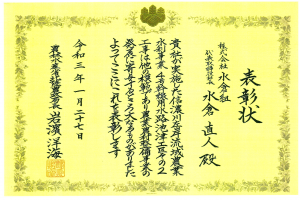 表彰状
株式会社 水倉組
代表取締役 水倉 直人 殿
貴社が実施した信濃川左岸流域農業
水利事業
工事は他の模範であり農業農村整備事業の
発展に寄与するところ大なるものがありました
よってここにこれを表彰します
令和三年一月二十七日
岩濱 洋海